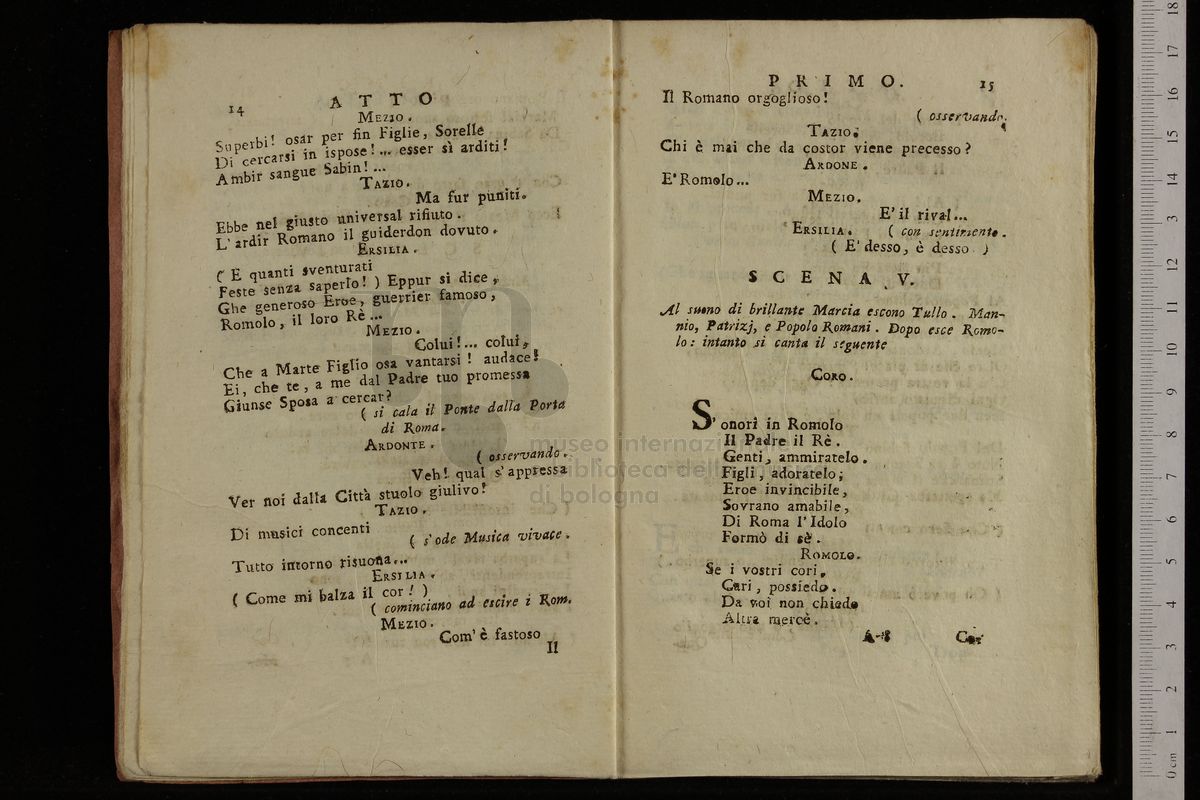 14 ATTO
MEZIO.
Superbi! osar per fin Figlie, Sorelle
Di cercarsi in ispose!... esser sì arditi!
Ambir sangue Sabin!...
TAZIO.
Ma fur puniti.
Ebbe nel giusto universal rifiuto.
L'ardir Romano il guiderdon dovuto.
ERSILIA.
( E quanti sventurati
Feste senza saperlo! ) Eppur si dice,
Ghe generoso Eroe, guerrier famoso,
Romolo, il loro Rè...
MEZIO.
Colui!... colui,
Che a Marte Figlio osa vantarsi! audace!
Ei, che te, a me dal Padre tuo promessa
Giunse Sposa a cercar?
( si cala il Ponte dalla Porta
di Roma.
ARDONTE.
( osservando.
Veh! qual s'appressa
Ver noi dalla Città stuolo giulivo!
TAZIO.
Di musici concenti
( s'ode Musica vivace.
Tutto intorno risuona...
ERSILIA.
( Come mi balza il cor! )
( cominciano ad escire i Rom.
MEZIO.
Com'è fastoso
Il
PRIMO. 15
Il Romano orgoglioso!
( osservando.
TAZIO.
Chi è mai che da costor viene precesso?
ARDONE.
E' Romolo...
MEZIO.
E' il rival...
ERSILIA. ( con sentimento.
( E' desso, è desso )
SCENA V.
Al suono di brillante Marcia escono Tullo. Man-
nio, Patrizj, e Popolo Romani. Dopo esce Romo-
lo: intanto si canta il seguente
CORO.
S'onori in Romolo
Il Padre il Rè.
Genti, ammiratelo.
Figli, adoratelo;
Eroe invincibile,
Sovrano amabile,
Di Roma l'Idolo
Formò di sè.
ROMOLO.
Se i vostri cori,
Cari, possiedo.
Da voi non chiedo
Altra mercè.
museo internazi
biblioteca della
di bologna
0 cm 1 2 3 4 5 6 7 8 9 10 11 12 13 14 15 16 17 18